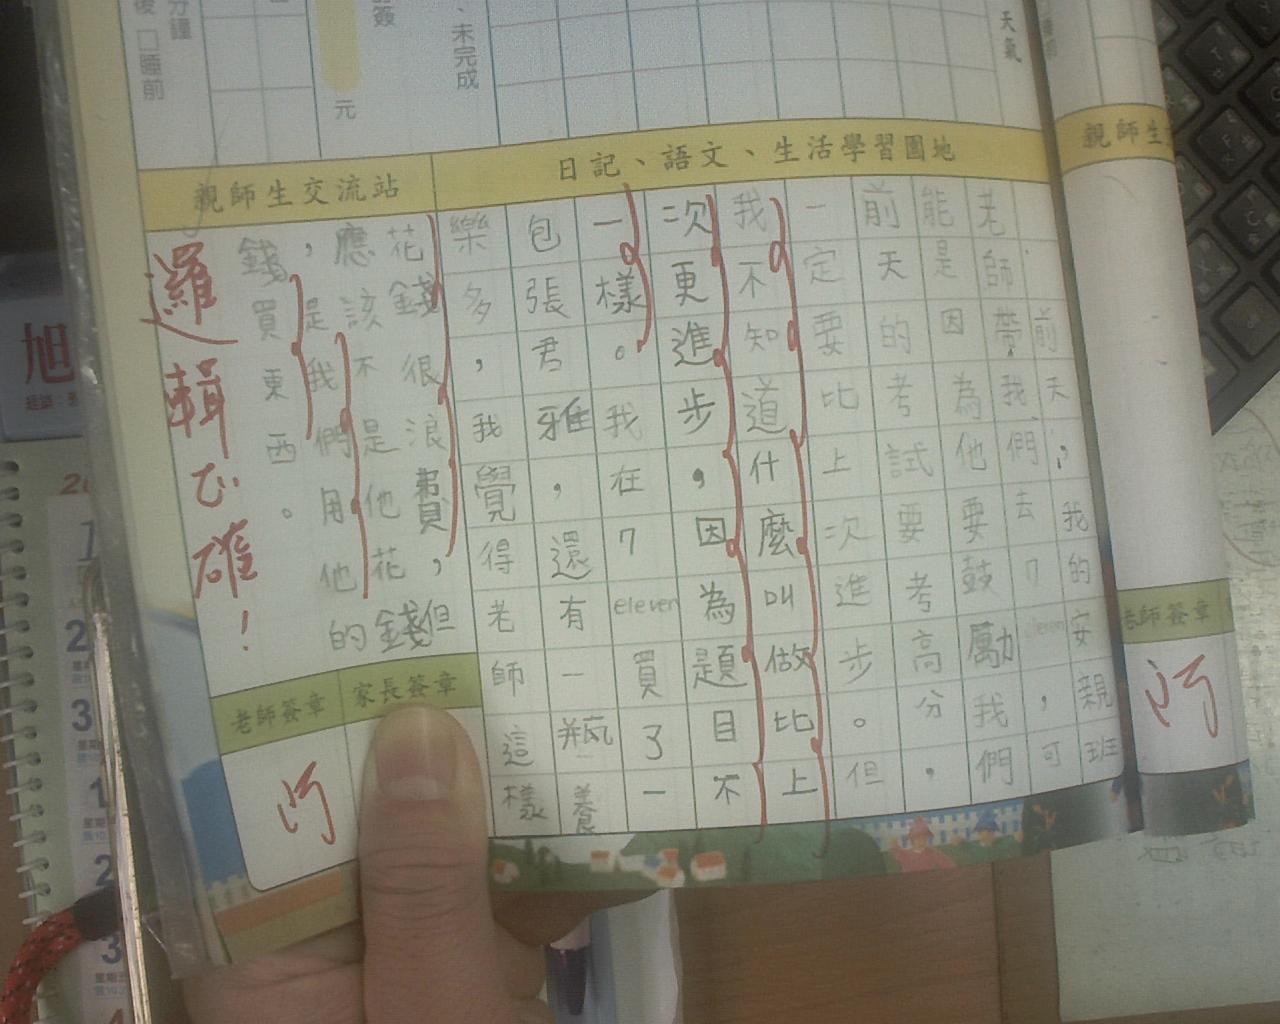 分鐘
後 口睡前
元
簽
、未完成
天氣
親師生交流站
日記、語文、生活學習園地
親師生
前天，我的安親班
老師帶我們去7eleven，可
能是因為他們要鼓勵我們
前天的考試要考高分，
一定要比上次進步。但
我不知道什麼叫做比上
次更進步，因為題目不
一樣。我在7eleven買了一
包張君雅，還有一瓶養
樂多，我覺得老師這樣
花錢很浪費，但
應該不是他花錢
，是我們用他的
錢買東西。
邏輯正確！
老師簽章
家長簽章
老師簽章
旭